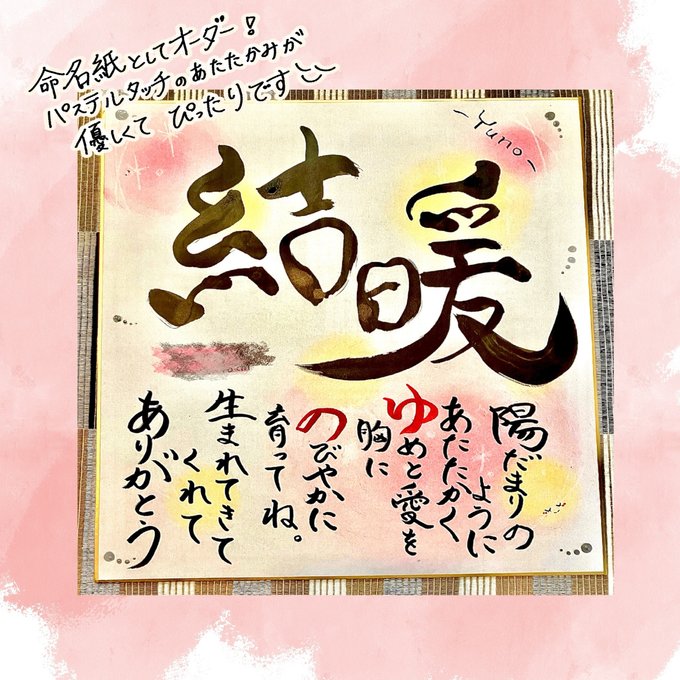 命名紙としてオーダー!
パステルタッチのあたたかみが
優しくて ぴったりです
-Yuno-
結暖
陽だまりの
ように
あたたかく
ゆめと愛を
胸に
のびやかに
育ってね。
生まれてきて
くれて
ありがとう